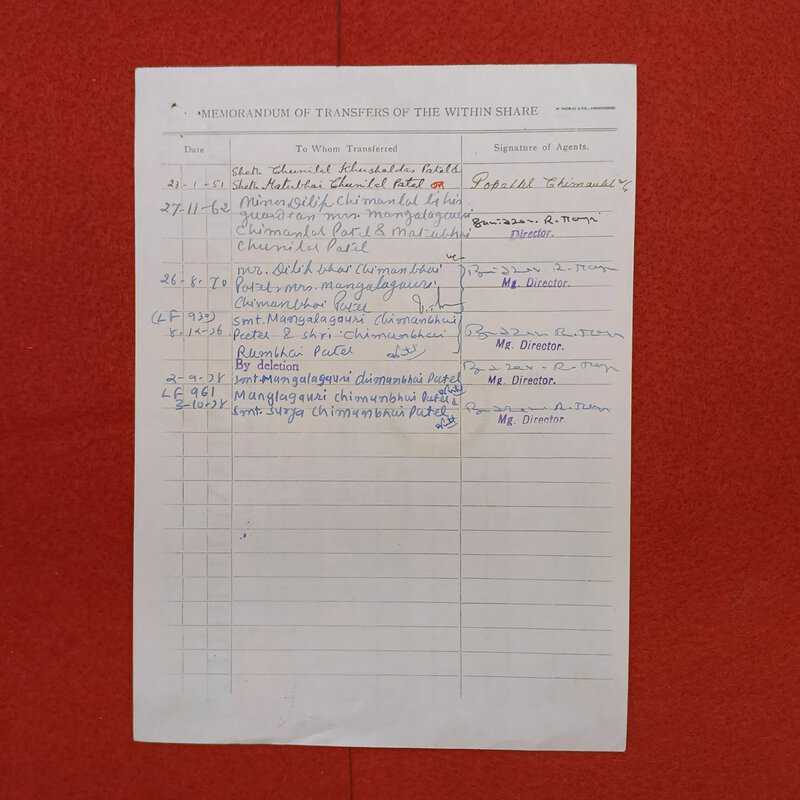 MEMORANDUM OF TRANSFERS OF THE WITHIN SHARE
Date To Whom Transferred Signature of Agents.
Sheth Chunilal Khushaldas Patel &
23-1-51 Sheth Matubhai Chunilal Patel Popatlal Chimanlal
27-11-62 Minor Dilip Chimanlal by his
guardian mrs. mangalagauri
Chimanlal Patel & Matubhai Director.
Chunilal Patel
26-8-70 mr. Dilipbhai Chimanbhai
Patel, mrs. mangalagauri Mg. Director.
Chimanbhai Patel
(LF 930) smt. Mangalagauri chimanbhai
8-12-76 Patel & shri chimanbhai
Rambhai Patel Mg. Director.
By deletion
2-9-78 smt. Mangalagauri chimanbhai Patel Mg. Director.
LF 961 Manglagauri chimanbhai Patel &
3-10-78 smt. Surya Chimanbhai Patel Mg. Director.